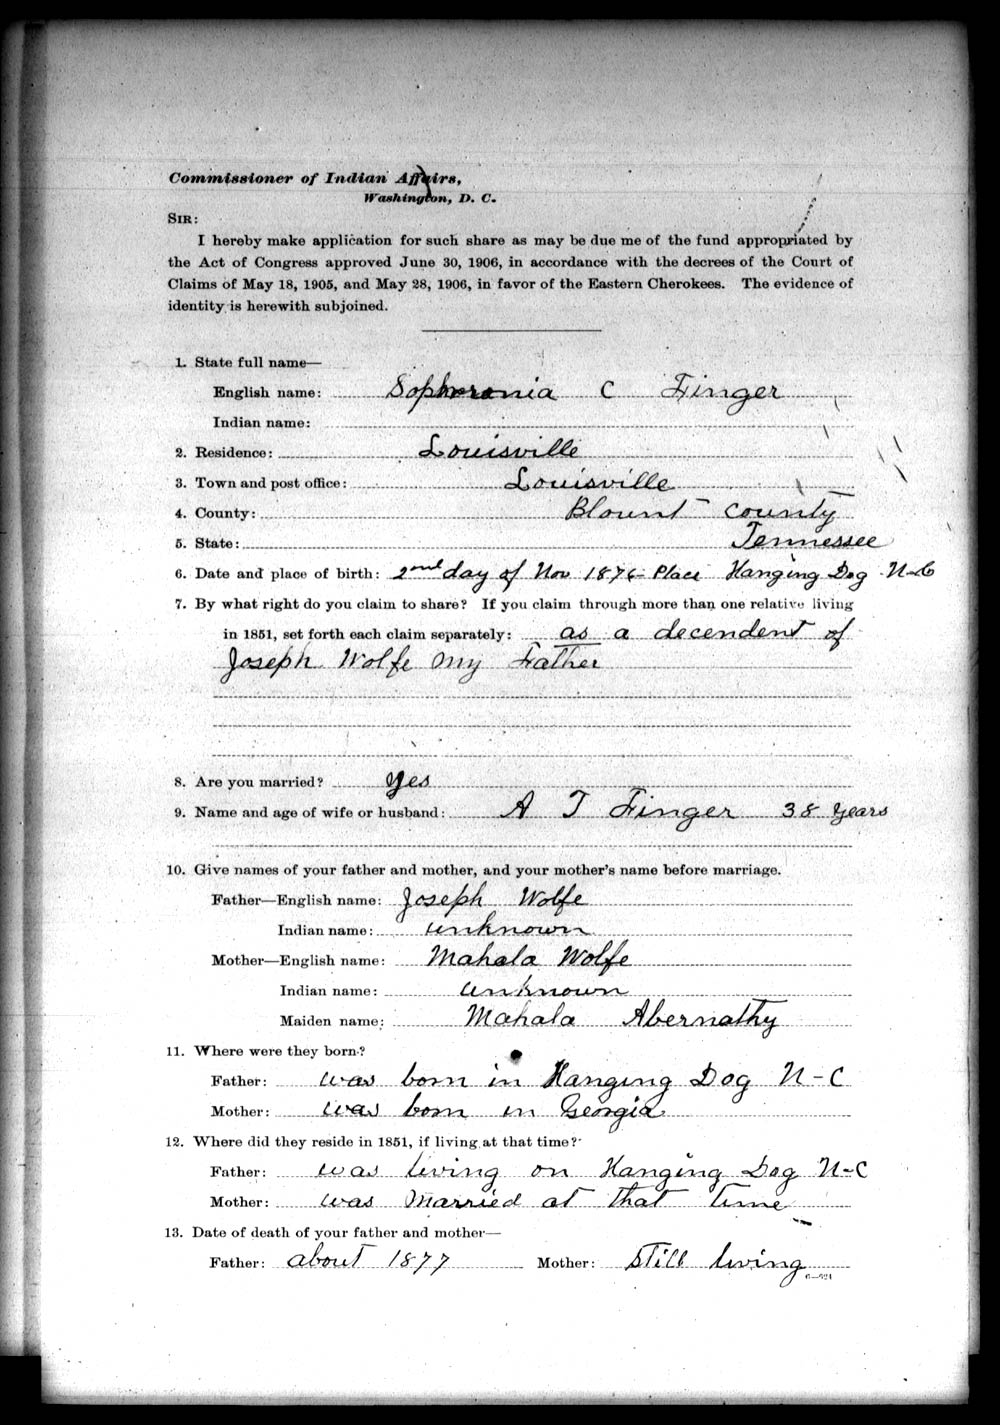 Commissioner of Indian Affairs,
Washington, D. C.
SIR:
I hereby make application for such share as may be due me of the fund appropriated by
the Act of Congress approved June 30, 1906, in accordance with the decrees of the Court of
Claims of May 18, 1905, and May 28, 1906, in favor of the Eastern Cherokees. The evidence of
identity is herewith subjoined.
1. State full name—
English name: Sophronia C Finger
Indian name:
2. Residence: Louisville
3. Town and post office: Louisville
4. County: Blount County
5. State: Tennessee
6. Date and place of birth: 2nd day of Nov 1876 - Place Hanging Dog N-C
7. By what right do you claim to share? If you claim through more than one relative living
in 1851, set forth each claim separately: as a decendent of
Joseph Wolfe My Father
8. Are you married? yes
9. Name and age of wife or husband: A T Finger 38 years
10. Give names of your father and mother, and your mother's name before marriage.
Father—English name: Joseph Wolfe
Indian name: unknown
Mother—English name: Mahala Wolfe
Indian name: unknown
Maiden name: Mahala Abernathy
11. Where were they born?
Father: was born in Hanging Dog N-C
Mother: was born in Georgia
12. Where did they reside in 1851, if living at that time?
Father: was living on Hanging Dog N-C
Mother: was Married at that time
13. Date of death of your father and mother—
Father: about 1877 Mother: Still living
6—921